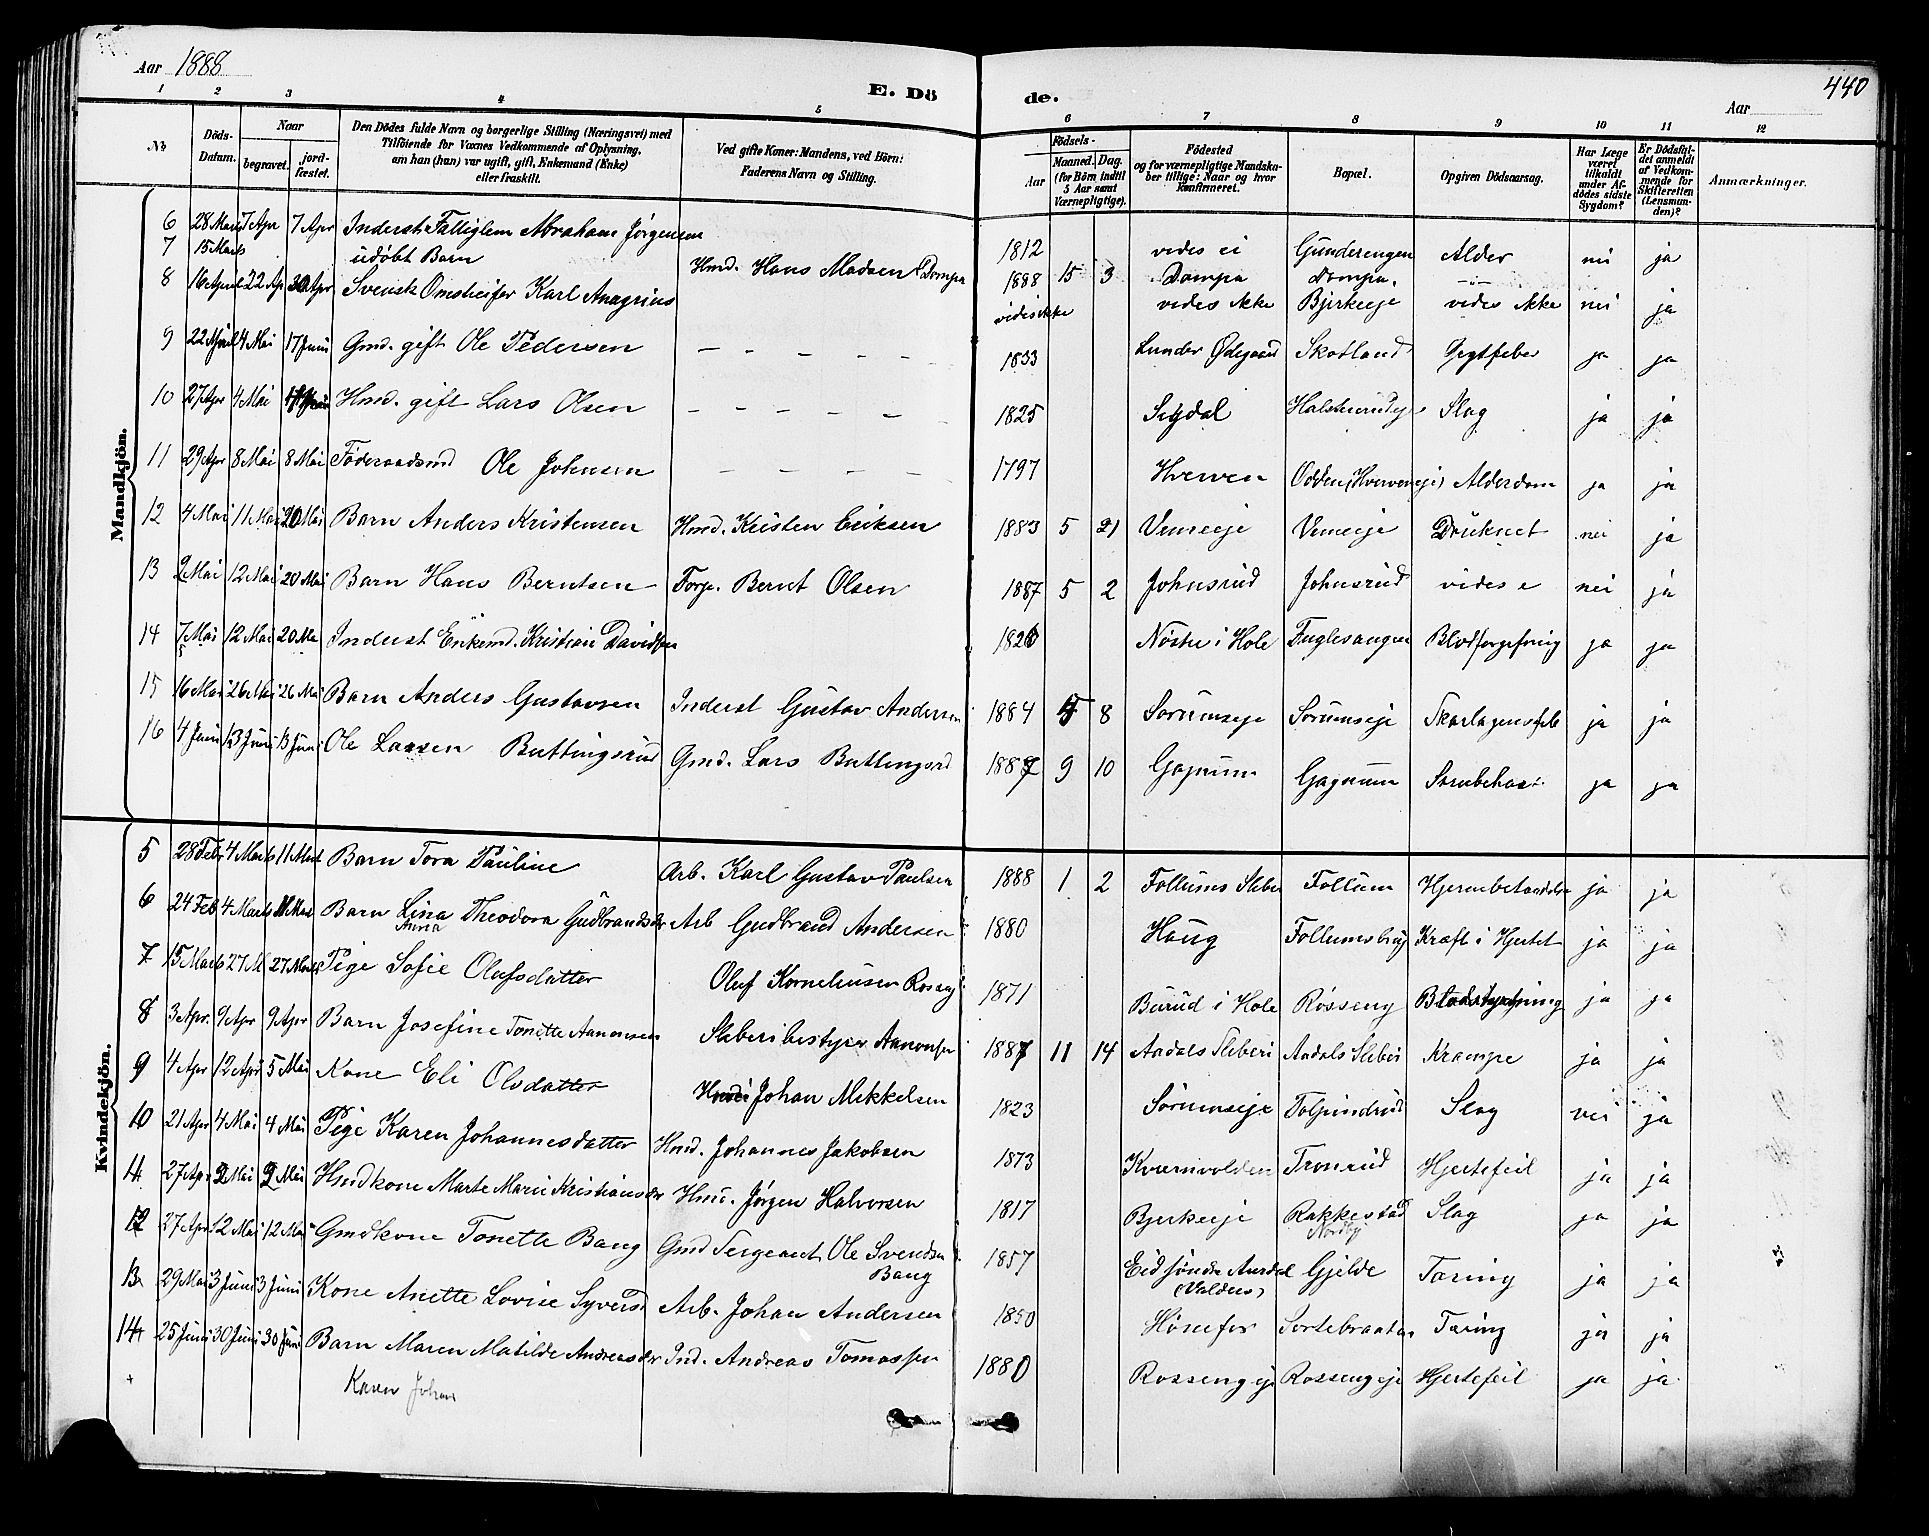 Aar 1888 E. Dö de. Aar 440
1 2 3 4 5 6 7 8 9 10 11 12
No Döds-Datum. Naar begravet. jord-fæstet. Den Dödes fulde Navn og borgerlige Stilling (Næringsvei) med Tilföiende for Voxnes Vedkommende af Oplysning, om han (hun) var ugift, gift, Enkemand (Enke) eller fraskilt. Ved gifte Koner: Mandens, ved Börn: Faderens Navn og Stilling. Födsels- Aar Maaned. Dag. (for Börn indtil 5 Aar samt Værnepligtige). Födested og for værnepligtige Mandskaber tillige: Naar og hvor Konfirmeret. Bopæl. Opgiven Dödsaarsag. Har Læge været tilkaldt under Afdödes sidste Sygdom? Er Dödsfaldet anmeldt af Vedkommende for Skifteretten (Lensmanden)? Anmærkninger.
Mandkjön.
6 28 Marts 7 Apr 7 Apr Inderst Fattiglem Abraham Jørgensen 1812 vides ei Gunderengen Alder nei ja
7 15 Marts udøbt Barn Hmd. Hans Madsen Dompa 1888 15 3 Dompa Dompa. — " —
8 16 April 22 Ap 30 Apr Svensk Omstreifer Karl Anagrius vides ikke vides ikke Bjerkeeje vides ikke nei ja
9 22 April 4 Mai 17 Juni Gmd. gift Ole Pedersen — — — — — — 1833 Lunder Ødegaard Skotland Gigtfeber ja ja
10 27 Apr 4 Mai Hmd. gift Lars Olsen — — — — — 1825 Sigdal Slag ja ja
11 29 Apr 8 Mai 8 Mai Föderaadsmd Ole Johnsen — — — — — 1797 Hverven Odden (Hverveneje) Alderdom ja ja
12 4 Mai 11 Mai 20 Mai Barn Anders Kristensen Hmd. Kristen Eriksen 1883 5 21 Vemeeje Vemeeje Druknet nei ja
13 2 Mai 12 Mai 20 Mai Barn Hans Berntsen Forp. Bernt Olsen 1887 5 2 Johnsrud Johnsrud vides e nei ja
14 7 Mai 12 Mai 20 Ma Inderst Enkemd. Kristian Davidsen 1826 Nøste i Hole Fuglesangen Blodforgiftning ja ja
15 16 Mai 26 Mai 26 Mai Barn Anders Gustavsen Inderst Gustav Andersen 1884 5 8 Sørumseje Sørumseje Skarlagensfeb ja ja
16 4 Juni 13 Juni 13 Juni Ole Larsen Buttingsrud Gmd. Lars Buttingsrd 1887 9 10 Gagnum Gagnum Strubehost ja ja
Kvindekjön.
5 28 Feb 4 Marts 11 Mart Barn Tora Pauline Arb. Karl Gustav Paulsen 1888 1 2 Follums Sliber Follum Hjernebetændelse ja ja
6 24 Feb 4 Marts 11 Mar Barn Lina Theodora Gudbrandsdr Arb Gudbrand Andersen 1880 Haug Follumsbrug Kræft i Hjertet ja ja
Anna
7 15 Marts 27 M 27 Marts Pige Sofie Olufsdatter Oluf Korneliusen Roseng 1871 Burud i Hole Rosseng Blodstyrtning ja ja
8 3 Apr. 9 Apr 9 Apr Barn Josefine Tonette Aanonsen Sliberibestyrer Aanonsen 1887 11 14 Aadals Sliberi Aadals Sliberi Krampe ja ja
9 4 Apr 12 Apr 5 Mai Kone Eli Olsdatter Johan Mikkelsen 1823 Sørumseje Tolpinrud Slag nei ja
10 21 Apr 4 Mai 4 Mai Pige Karen Johannesdatter Hmd. Johannes Jakobsen 1873 Kvernvolden Tronrud Hjertefeil ja ja
11 27 Apr 2 Mai 2 Mai Hmdkone Marte Marie Kristiansdr Hmd. Jørgen Halvorsen 1817 Bjerkeeje Rakkestad Slag ja ja
Nordby
12 27 Apr 12 Mai 12 Mai Gmdkone Tonette Bang Gmd Sergeant Ole Svendsen 1857 Eid søndre Aurdal Gjelde Tæring ja ja
Bang (Valders)
13 29 Mai 3 Juni 3 Juni Kone Anette Lovise Syversd Arb. Johan Andersen 1850 Hønefos Sortebraaten Tæring ja ja
14 25 Juni 30 Juni 30 Juni Barn Maren Matilde Andreasdr Ind. Andreas Tomassen 1880 Rosseng eje Rosseng eje Hjertefeil ja ja
Karen Johan